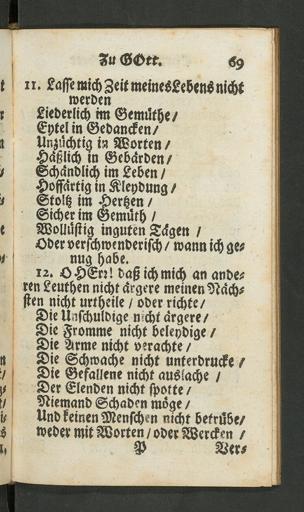 Zu GOtt. 69
11. Lasse mich Zeit meines Lebens nicht
werden
Liederlich im Gemüthe /
Eytel in Gedancken /
Unzüchtig in Worten /
Häßlich in Gebärden /
Schändlich im Leben /
Hoffärtig in Kleydung /
Stoltz im Hertzen /
Sicher im Gemüth /
Wollüstig in guten Tägen /
Oder verschwenderisch / wann ich ge-
nug habe.
12. O HErr! daß ich mich an ande-
ren Leuthen nicht ärgere meinen Näch-
sten nicht urtheile / oder richte /
Die Unschuldige nicht ärgere /
Die Fromme nicht beleydige /
Die Arme nicht verachte /
Die Schwache nicht unterdrucke /
Die Gefallene nicht auslache /
Der Elenden nicht spotte /
Niemand Schaden möge /
Und keinen Menschen nicht betrübe /
weder mit Worten / oder Wercken /
P Ver-